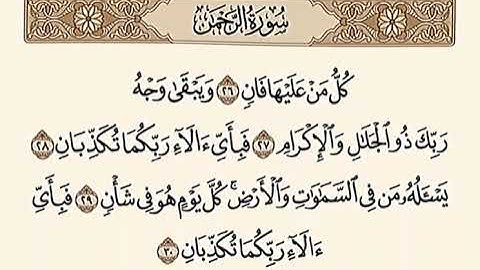 سُورَةُ الرَّحْمَٰن
كُلُّ مَنْ عَلَيْهَا فَانٍ ٢٦ وَيَبْقَىٰ وَجْهُ
رَبِّكَ ذُو ٱلْجَلَٰلِ وَٱلْإِكْرَامِ ٢٧ فَبِأَيِّ ءَالَآءِ رَبِّكُمَا تُكَذِّبَانِ ٢٨
يَسْـَٔلُهُۥ مَن فِى ٱلسَّمَٰوَٰتِ وَٱلْأَرْضِ ۚ كُلَّ يَوْمٍ هُوَ فِى شَأْنٍ ٢٩ فَبِأَيِّ
ءَالَآءِ رَبِّكُمَا تُكَذِّبَانِ ٣٠